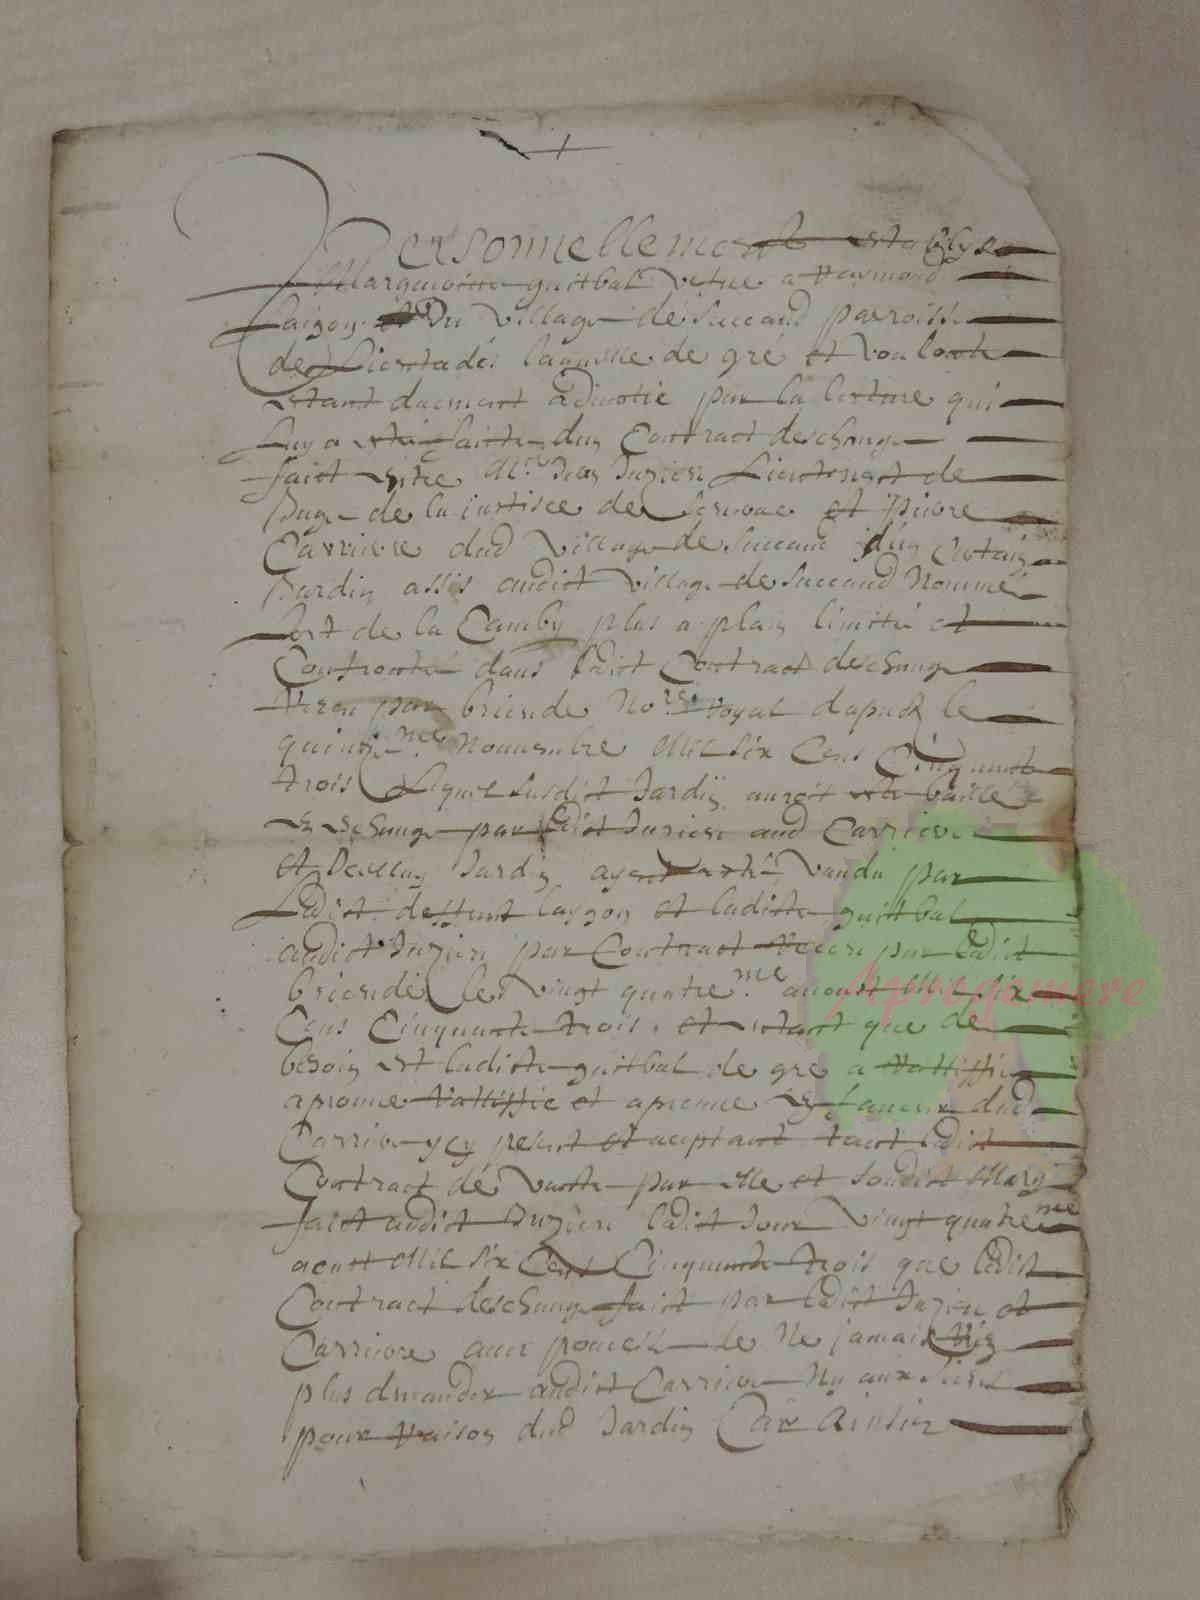 Personnellement establye
Marguoitte guitbal vefve a Raymond
Laizon Du village de Succaud parroisse
de laquelle de gré et voulonte
estant duement adivertie par la lecture qui
luy a esté faicte dun Contract deschange
faict entre Me Jean Juzieu Lieutenent de
Juge de la justisce de et Pierre
Carriere dud village de Succaud dun Certain
Jardin assis audict village de Succaud Nommé
lort de la Camby plus a plain limité et
Confronté dans ledict Contract deschange
Receu par briende Nore Royal dapuch le
quinzime Novembre Mil six Cens Cinquante
trois Lequel susdict Jardin auroit esté baillé
en eschange par ledict Juzieu aud Carriere
et Jardin ayent esté vandu par
Ledict deffunt layzon et ladicte guitbal
audict Juzieu par Contract Receu par ledict
briende le vingt quatreme auoust Mil six
Cens Cinquante trois, et estant que de
besoin est ladicte guitbal de gre a Rattiffié
aprouve Rattiffie et aprouve en faveur dud
Carriere ycy presant et aceptant tant ledict
Contract de vante par elle et sondict Mary
faict audict Juzieu ledict Jour vingt quatreme
aoust Mil six Cens Cinquante trois que ledict
Contract deschange faict par ledict Juzieu et
Carriere avec promesse de Ne jamais Rien
plus dmander audict Carriere Ny aux siens
pour Raison dud Jardin Car Ainsin
Aprogemere